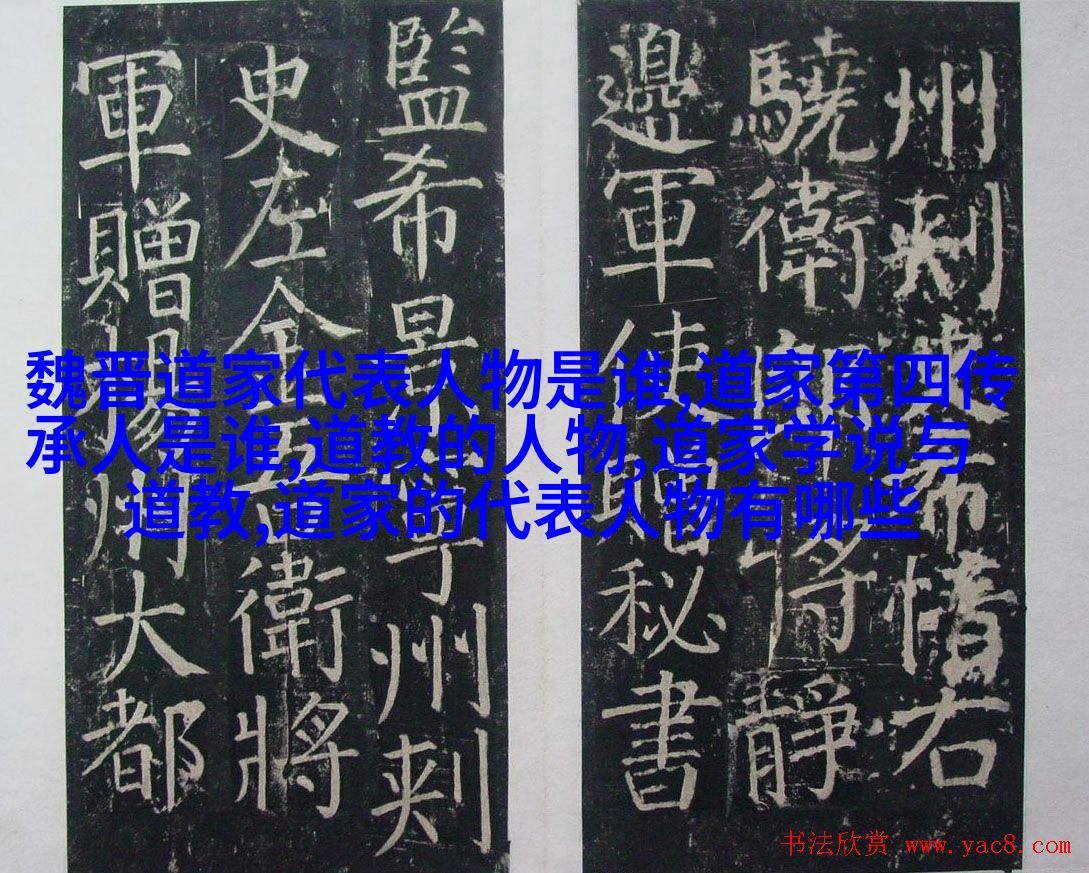 州刺史希愔右
驍衛郎將靜
邊軍使贈秘書
監希景寧州刺
史左金吾衛將
軍贈揚州大都
魏晋道家代表人物是谁,道家第四传
承人是谁,道教的人物,道家学说与
道教,道家的代表人物有哪些
书法欣赏 www.yac8.com